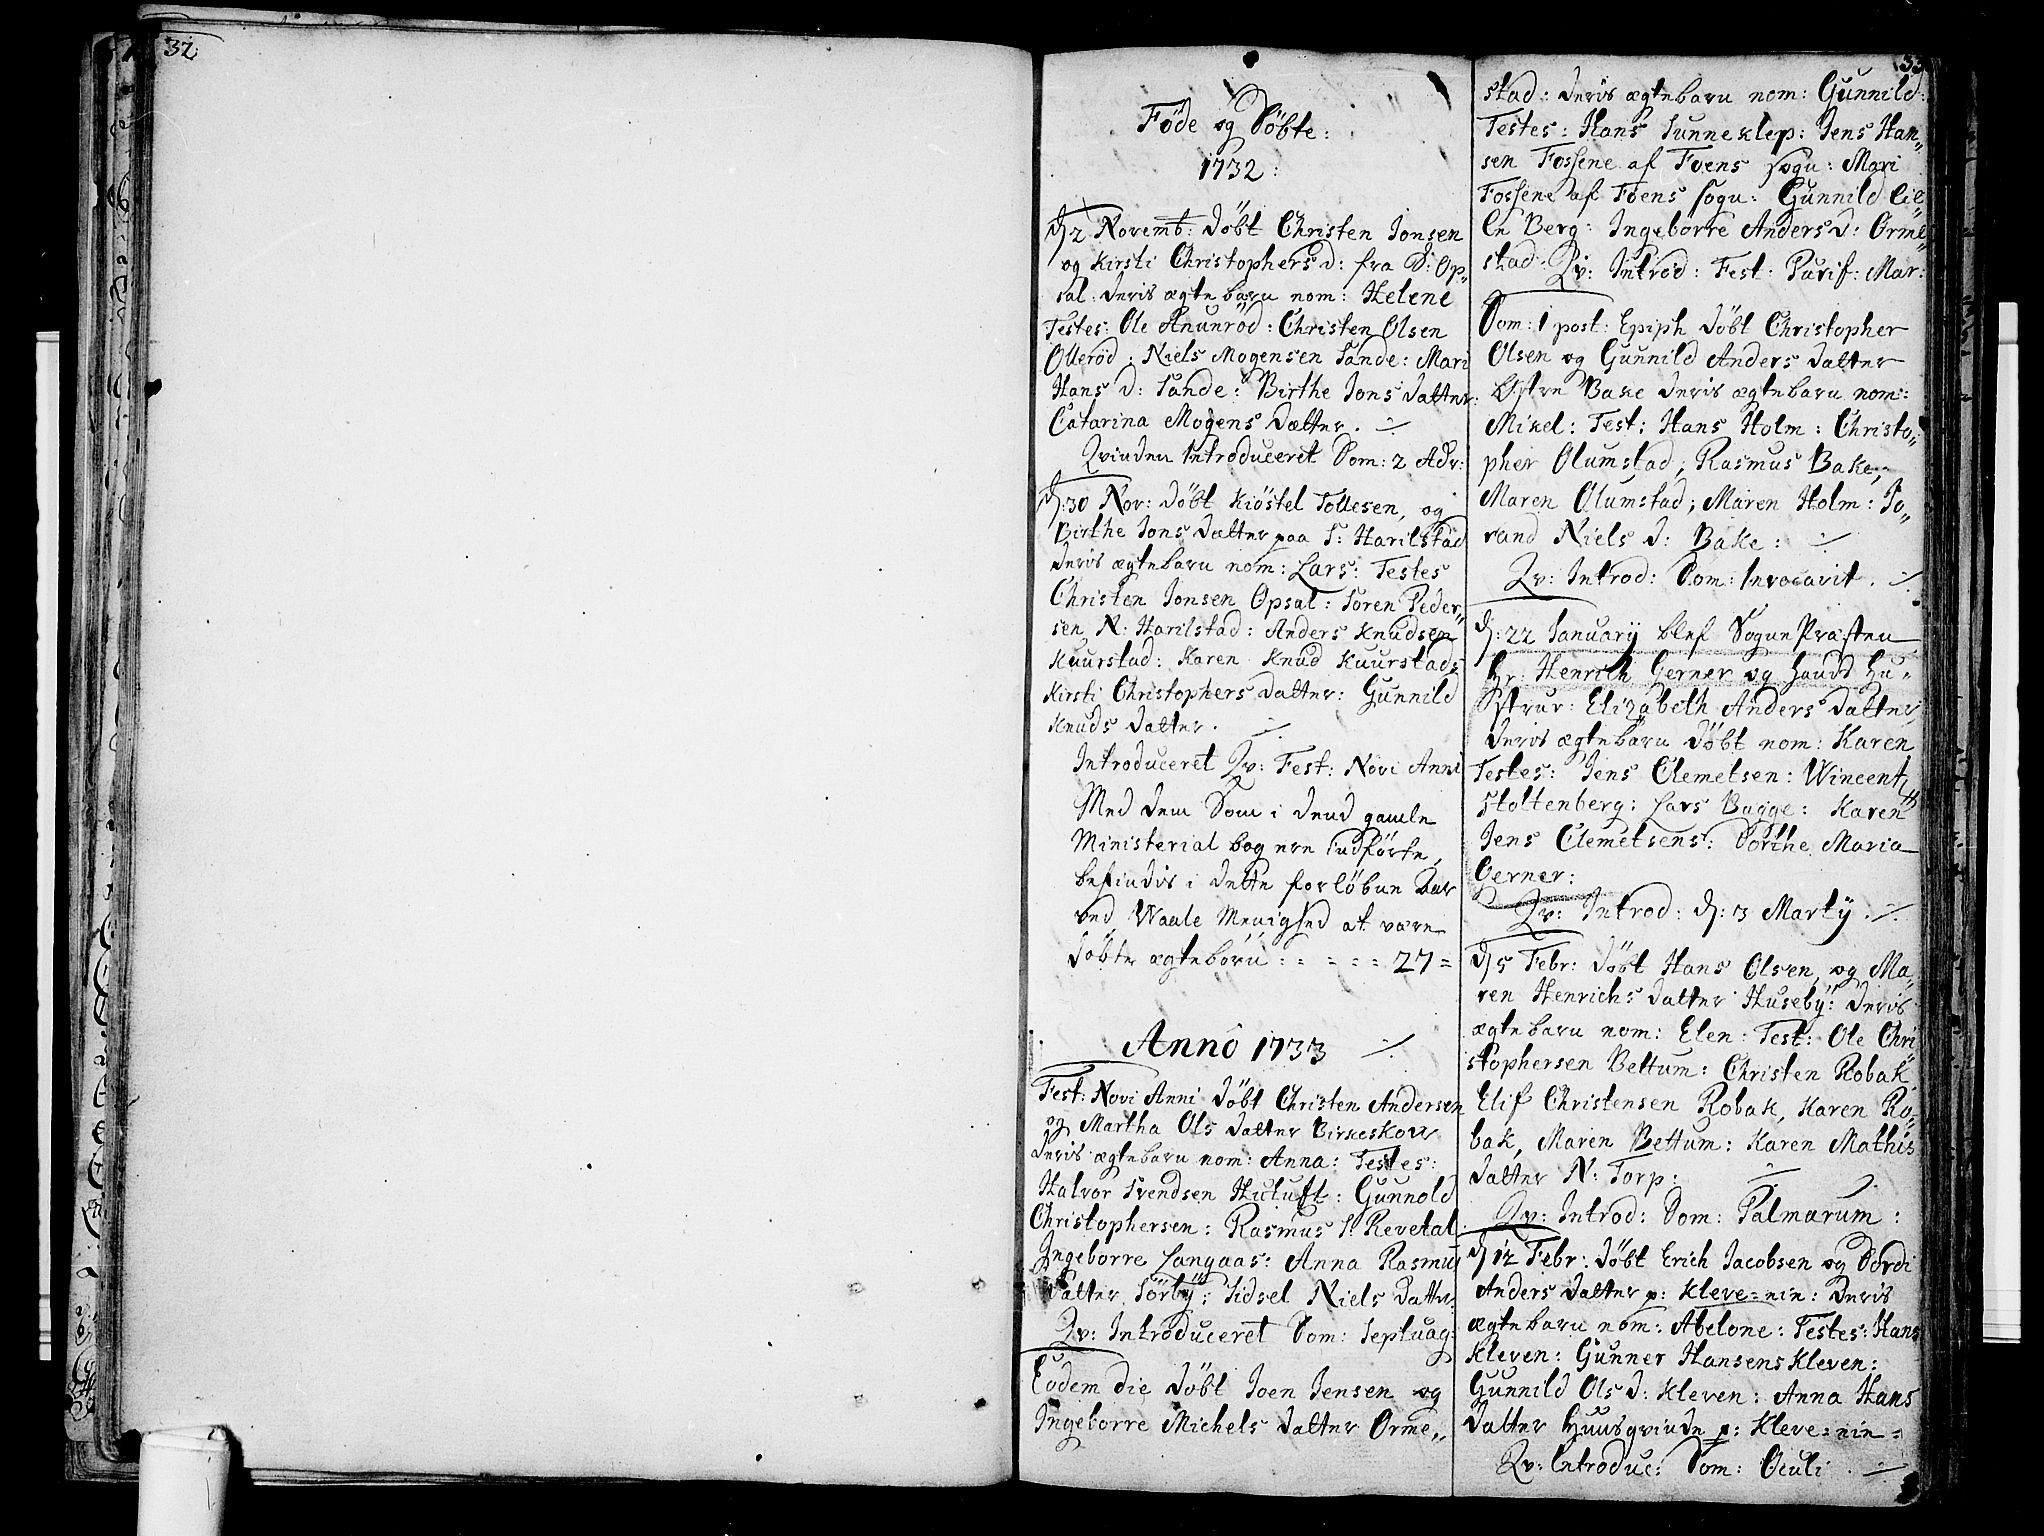 32.
Föde og Döbte:
1732:
d: 2 Novemb: Döbt Christen Jonsen
og Kirsti Christophers d: fra S: Op„
sal: deris ægte barn nom: Helene
Testes: Ole Anunröd: Christen Olsen
Olleröd: Niels Mogensen Sande: Mari
Hans d: Sande: Birthe Jons datter:
Catarina Mogens Datter. ./.
Qvinden Introduceret Dom: 2 Adv:
d: 30 Nov: Döbt Kiöstel Tollesen, og
Birthe Jons datter paa S: Harilstad
deris ægte barn nom: Lars: Testes
Christen Jonsen Opsal: Soren Peder„
sen N: Harilstad: Anders Knudsen
Kuurstad: Karen Knud Kuurstads
Kirsti Christophers datter: Gunnild
Knuds datter. ./.
Introduceret Qv: Fest: Novi Anni
Med dem Som i dend gamle
Ministerial bog ere Indförte,
befindis i dette forlöbne Aar
ved Waale Menighed at være
döbte ægte börn : = = = = 27 =
Anno 1733 ./.
Fest: Novi Anni Döbt Christen Andersen
og Martha Ols datter Birkeskow
deris ægte barn nom: Anna: Testes:
Halvor Svendsen Hutuft: Gunnold
Christophersen: Rasmus S: Revetal
Ingeborre Langaas: Anna Rasmus
datter Sörbÿ: Sidsel Niels Datter:
Qv: Introduceret Dom: Septuag:
Eodem die döbt Joen Jensen og
Ingeborre Michels datter Orme„
33
stad: deris ægte barn nom: Gunnild:
Testes: Hans Sunneklep: Jens Han„
sen Fossene af Foens sogn: Mari
Fossene af Foens sogn: Gunnild lie„
le Berg: Ingeborre Anders d: Orme„
stad. Qv: Introd: Fest: Purif: Mar:
Dom: 1 post: Epiph döbt Christopher
Olsen og Gunnild Anders datter
Østre Bake deris ægte barn nom:
Mikel: Test: Hans Holm: Christo„
pher Olumstad; Rasmus Bake,
Maren Olumstad; Maren Holm: Jo„
rand Niels d: Bake: ./.
Qv: Introd: Dom: Invocavit. ./.
d: 22 Januarÿ blef Sogne Præsten
Hr: Henrich Gerner og hands Hu„
strue: Elizabeth Anders datter,
deris ægte barn Döbt nom: Karen
Testes: Jens Clemetsen: Wincentz
Stoltenberg: Lars Bugge: Karen
Jens Clemetsens: Dorthe Maria
Gerner:
Qv: Introd: d: 3 Martÿ. ./.
d: 5 Febr: döbt Hans Olsen, og Ma„
ren Henrichs datter Husebÿ: deris
ægte barn nom: Elen: Test: Ole Chri
stophersen Bettum: Christen Robak
Elif Christensen Robak, Karen Ro„
bak, Maren Bettum: Karen Mathis
datter N: Torp: ./.
Qv: Introd: Dom: Palmarum:
d: 12 Febr: döbt Erich Jacobsen og Dordi
Anders datter p: Kleve=eie: deris
ægte barn nom: Abelone: Testes: Hans
Kleven: Gunner Hansens Kleven:
Gunnild Ols d: Kleven: Anna Hans
datter Huusqvinde p: Kleve=eie=
Qv: Introduc: Dom: Oculi. ./.